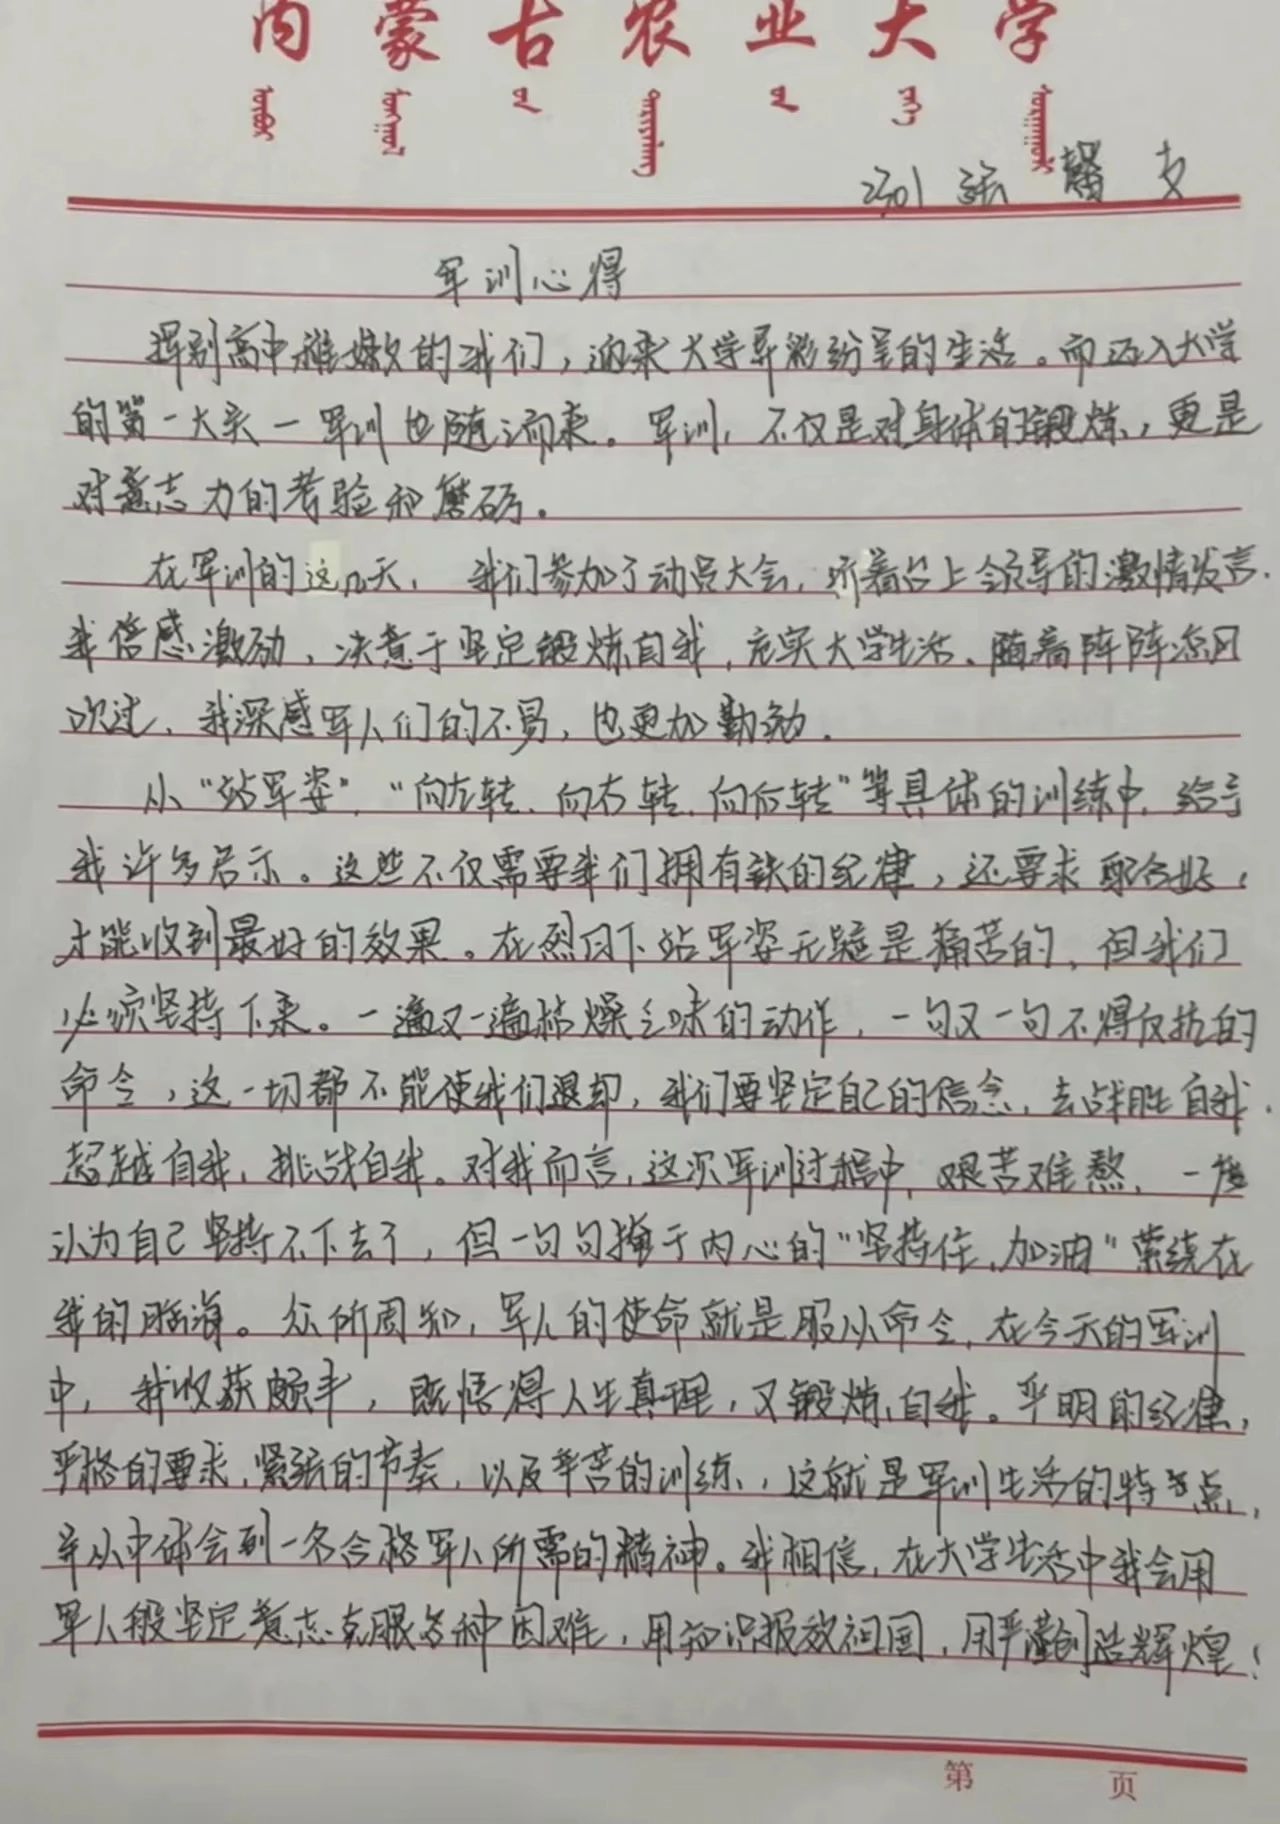 内蒙古农业大学
军训心得
挥别高中稚嫩的我们，迎来大学异彩纷呈的生活。而迈入大学
的第一大关一军训也随之而来。军训，不仅是对身体的锻炼，更是
对意志力的考验和磨砺。
在军训的这几天，我们参加了动员大会，听着台上领导的激情发言，
我倍感激励，决意于坚定锻炼自我，充实大学生活、随着阵阵凉风
吹过，我深感军人们的不易，也更加勤勉。
从"站军姿"，"向左转、向右转、向后转"等具体的训练中，给予
我许多启示。这些不仅需要我们拥有铁的纪律，还要求配合好，
才能收到最好的效果。在烈日下站军姿无疑是痛苦的，但我们
必须坚持下来。一遍又一遍枯燥乏味的动作，一句又一句不得反抗的
命令，这一切都不能使我们退却，我们要坚定自己的信念，去战胜自我，
超越自我，挑战自我。对我而言，这次军训过程中，艰苦难熬，一度
认为自己坚持不下去了，但一句句掩于内心的"坚持住，加油"萦绕在
我的脑海。众所周知，军人的使命就是服从命令，在今天的军训
中，我收获颇丰，既悟得人生真理，又锻炼自我。严明的纪律，
严格的要求，紧张的节奏，以及辛苦的训练，这就是军训生活的特点，
并从中体会到一名合格军人所需的精神。我相信，在大学生活中我会用
军人般坚定意志克服各种困难，用知识报效祖国，用严谨创造辉煌！
第 页